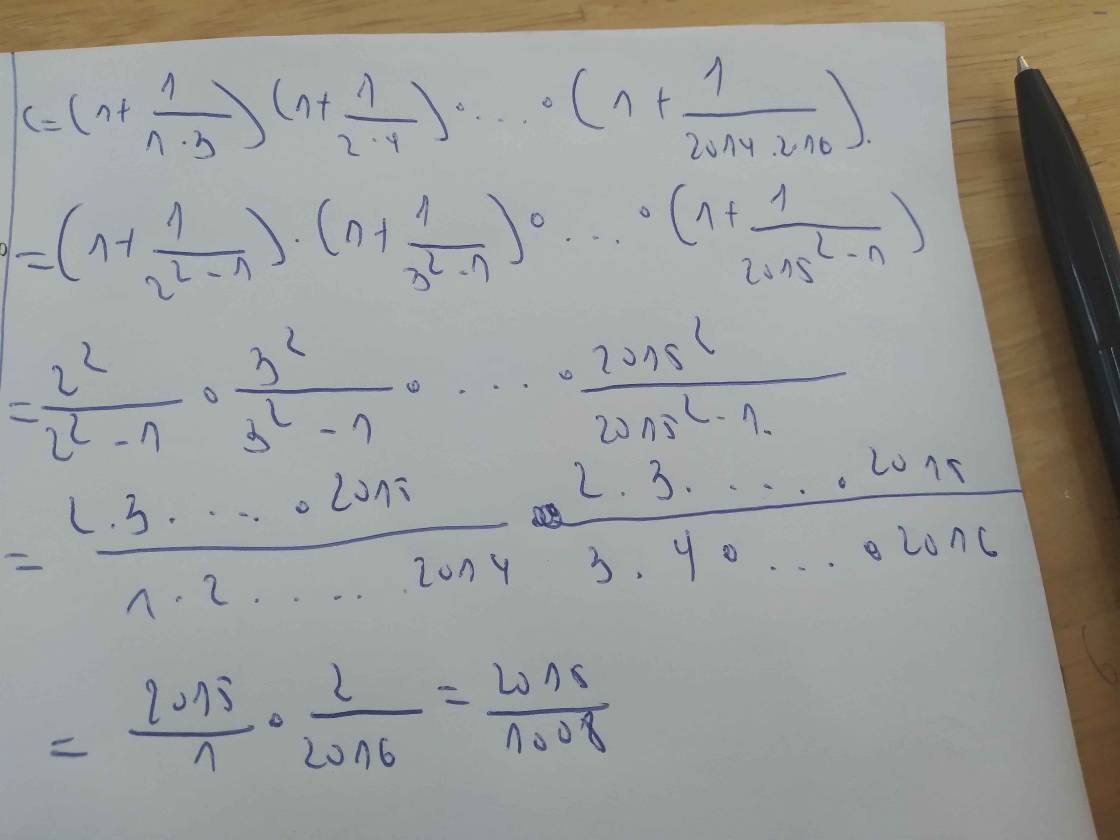 C = (1 + 1/(1·3)) (1 + 1/(2·4)) · ... · (1 + 1/(2014.2016)).
= (1 + 1/(2² - 1)) · (1 + 1/(3² - 1)) · ... · (1 + 1/(2015² - 1))
= 2²/(2² - 1) · 3²/(3² - 1) · .... · 2015²/(2015² - 1).
= (2.3. .... . 2015)/(1.2......2014) · (2.3. .... . 2015)/(3.4. .... . 2016)
= 2015/1 · 2/2016 = 2015/1008